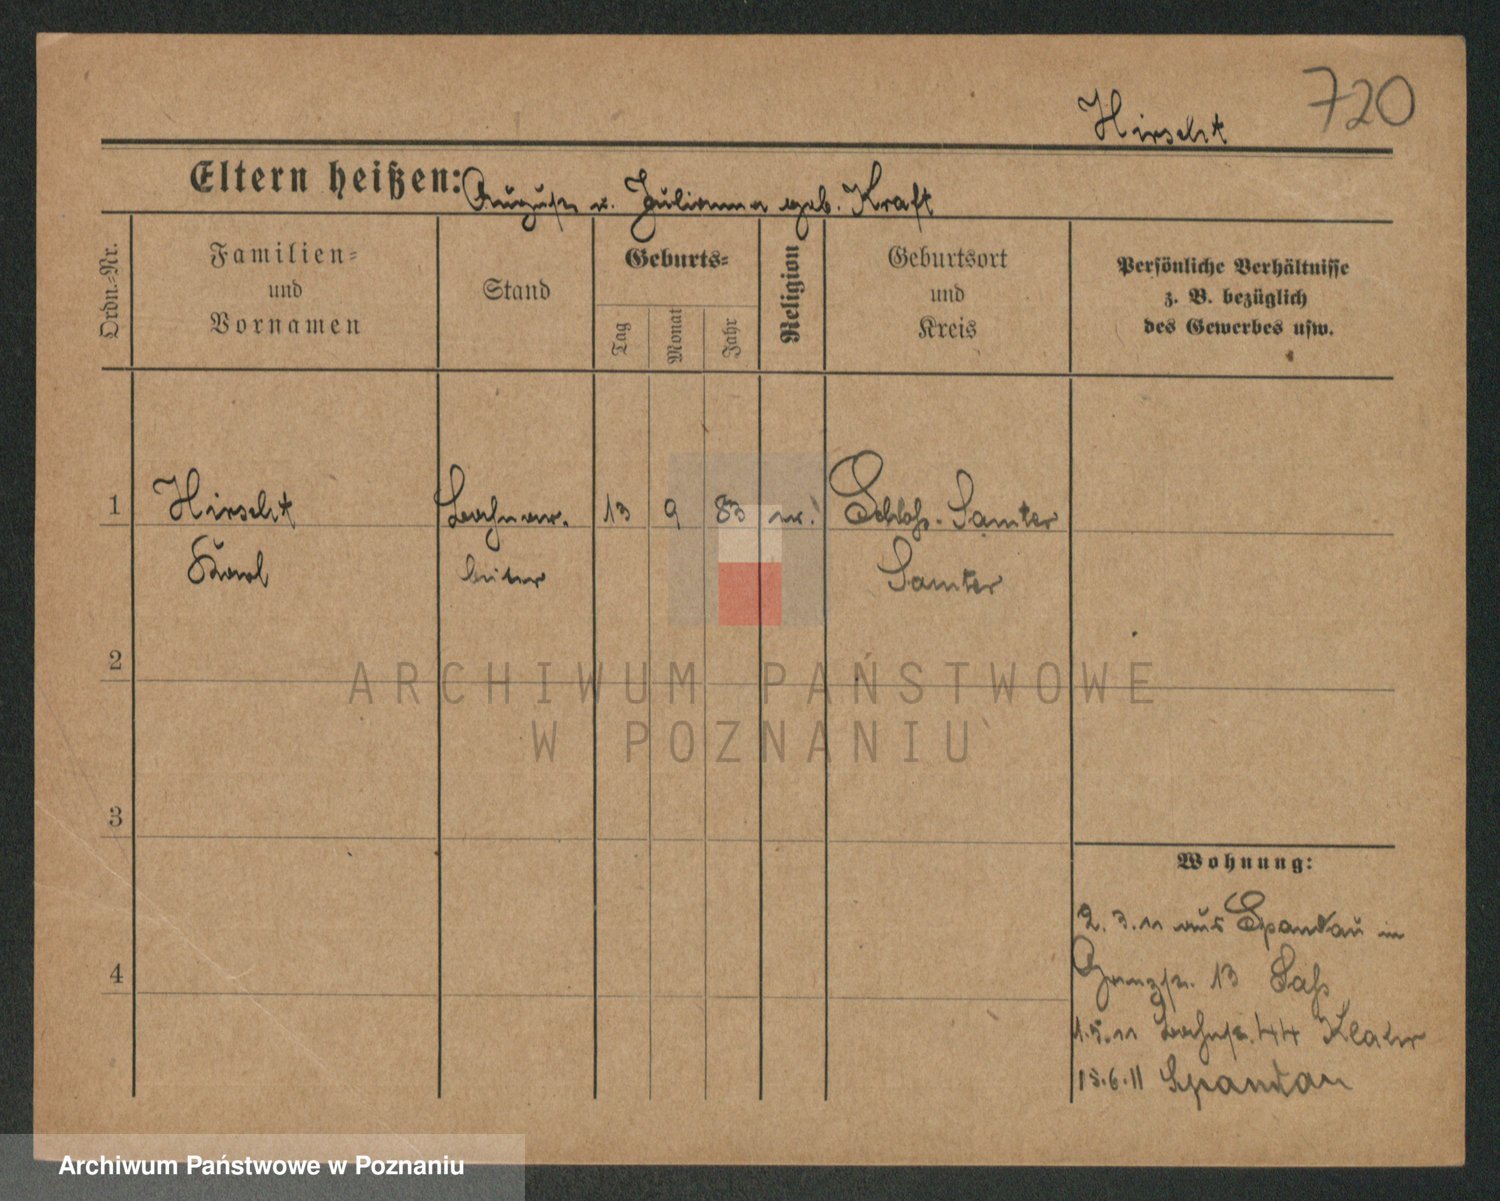 720
Hirscht
Eltern heißen: August u. Julianna geb. Kraft
Ordn.-Nr.
Familien-
und
Vornamen
Stand
Geburts-
Tag
Monat
Jahr
Religion
Geburtsort
und
Kreis
Persönliche Verhältnisse
z. B. bezüglich
des Gewerbes usw.
1 Hirscht 13 9 83 Schloß-Samter
Karl beiter Samter
2
ARCHIWUM PAŃSTWOWE
W POZNANIU
3
Wohnung:
2.3.11 aus Spandau in
4
13 Saß
1.5.11 44
15.6.11 Spandau
Archiwum Państwowe w Poznaniu